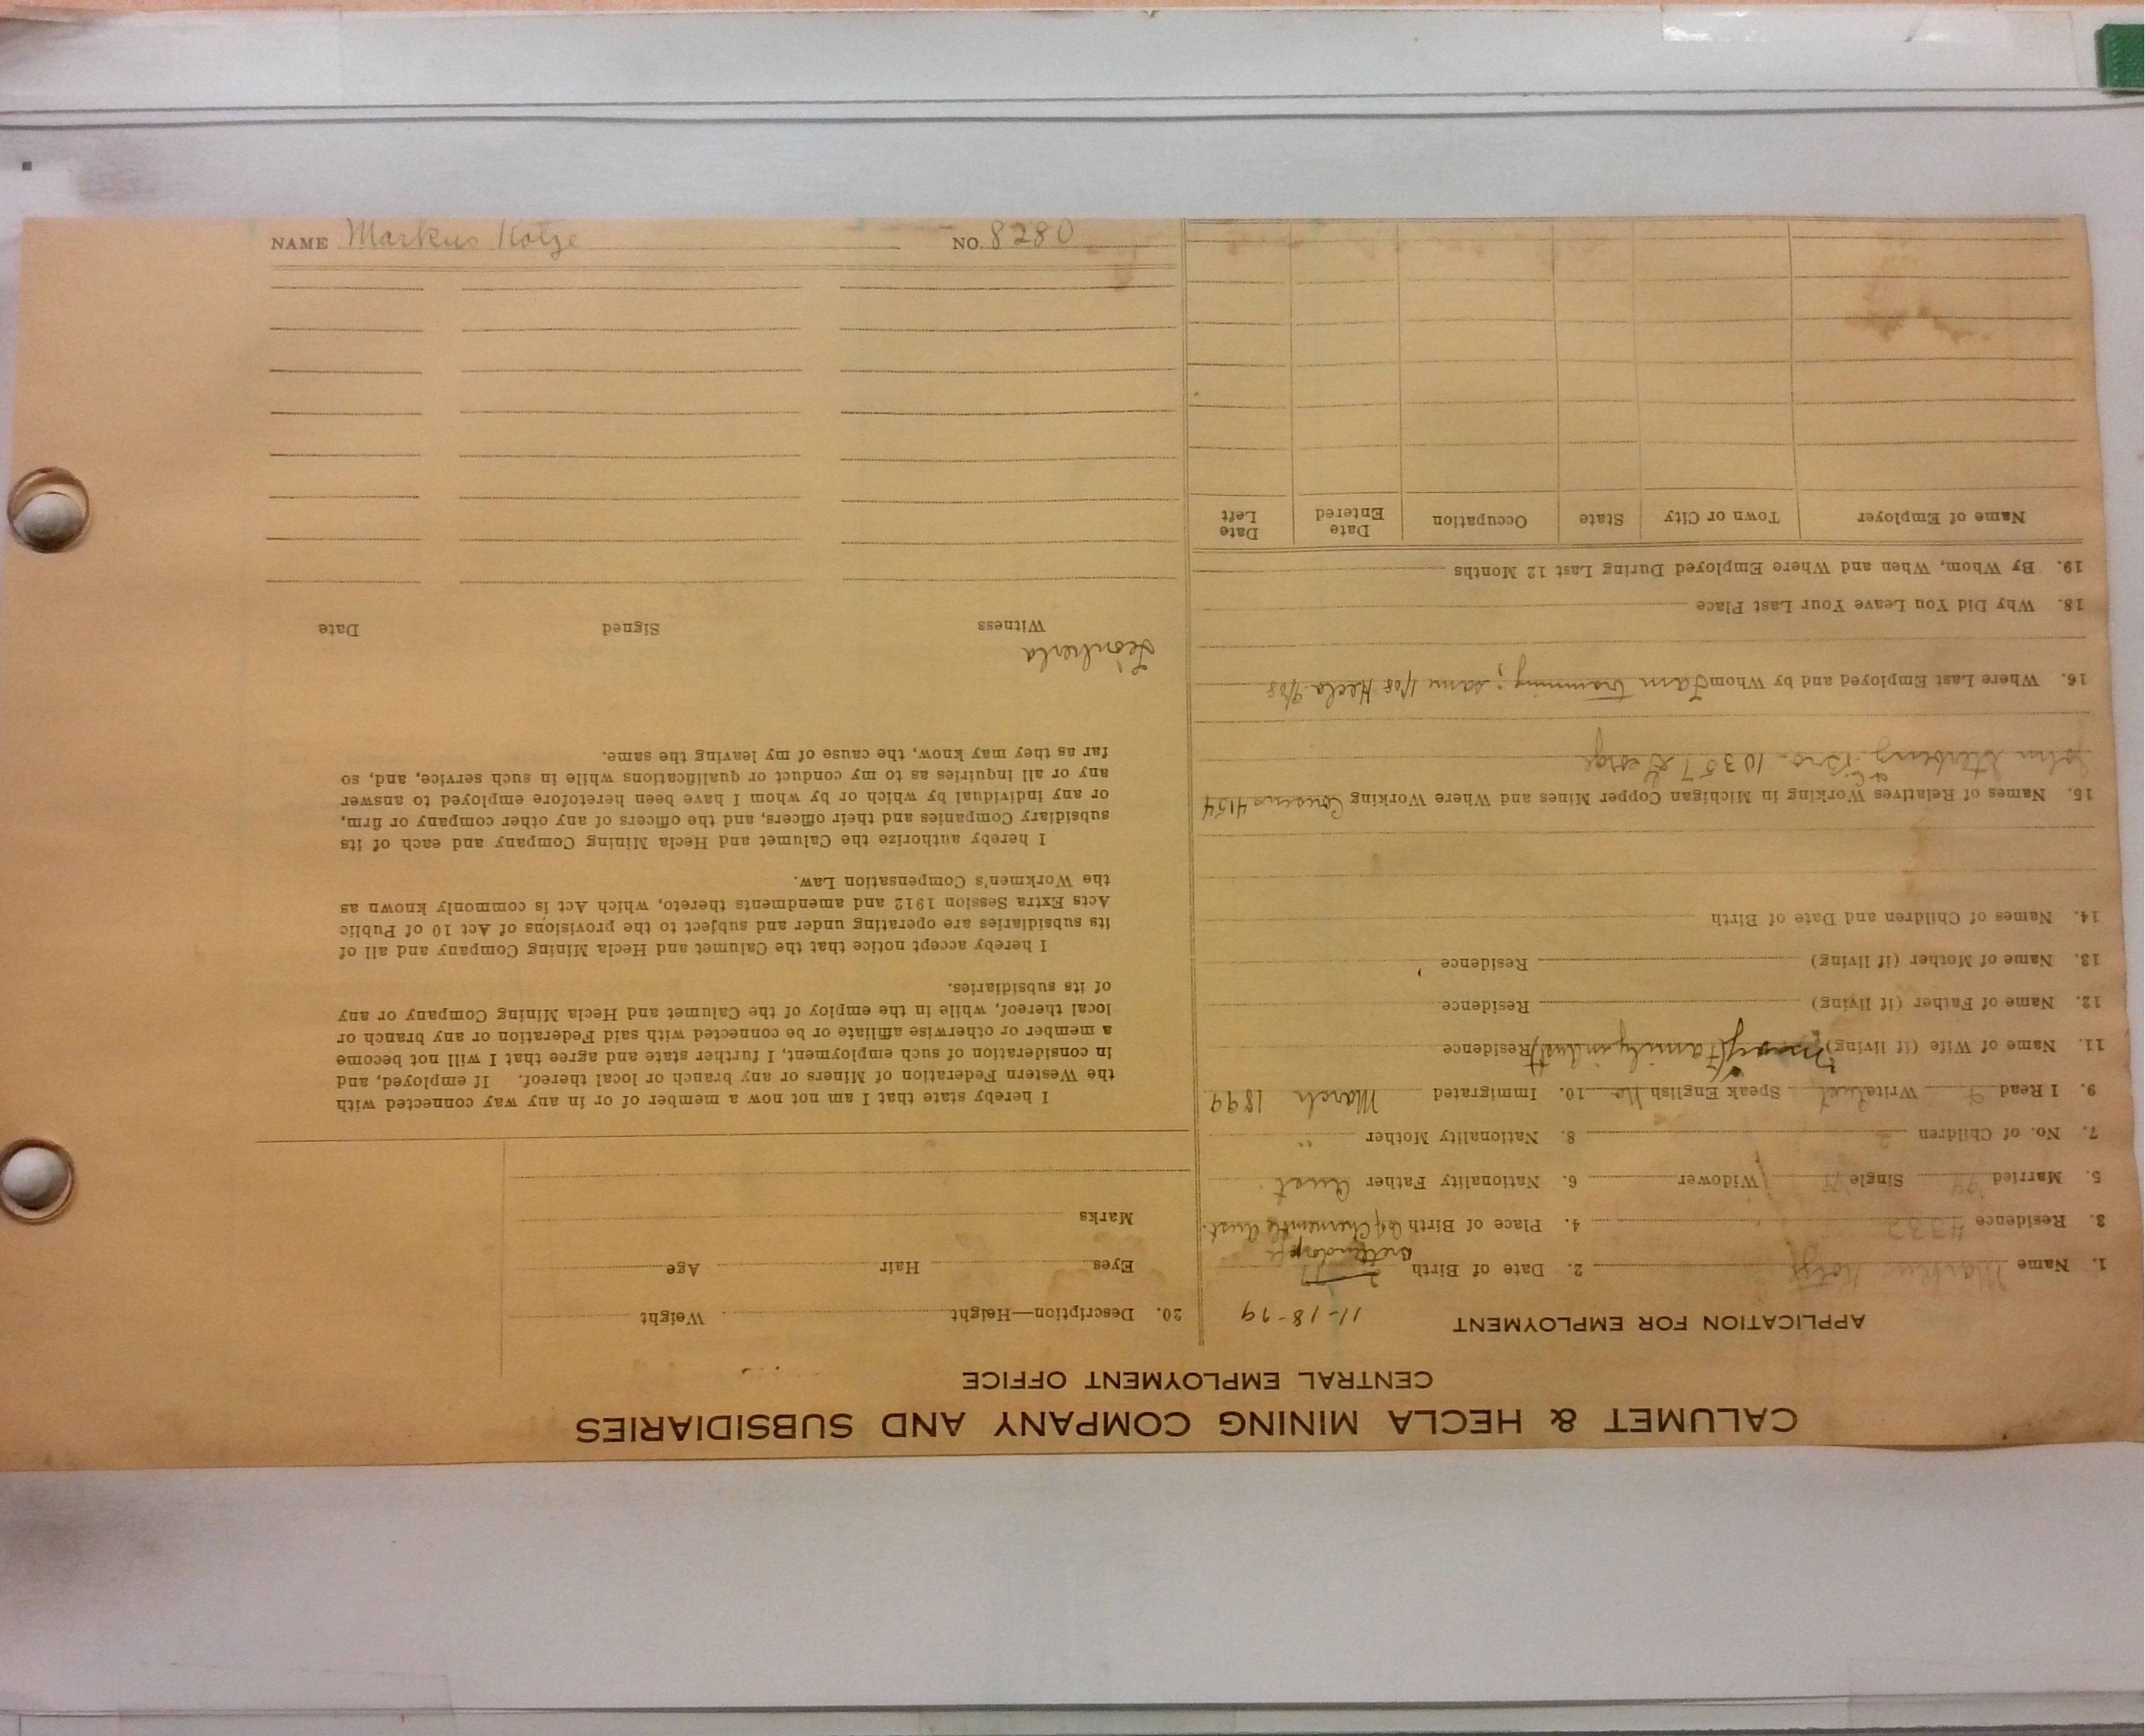 CALUMET & HECLA MINING COMPANY AND SUBSIDIARIES
CENTRAL EMPLOYMENT OFFICE
APPLICATION FOR EMPLOYMENT
11-18-79
1. Name Markus Kotze 2. Date of Birth
3. Residence 4332 4. Place of Birth Aust.
5. Married Single Widower 6. Nationality Father Aust.
7. No. of Children 2 8. Nationality Mother "
9. I Read Write Speak English No 10. Immigrated March 1899
11. Name of Wife (if living) Mary (Family in Aust) Residence
12. Name of Father (if living) Residence
13. Name of Mother (if living) Residence
14. Names of Children and Date of Birth
15. Names of Relatives Working in Michigan Copper Mines and Where Working Cousins 4154
John Sterbenz Bro. 10357 George
16. Where Last Employed and by Whom Tam tramming; same 1/08 Hecla 9/08
18. Why Did You Leave Your Last Place
19. By Whom, When and Where Employed During Last 12 Months
Name of Employer Town or City State Occupation Date Entered Date Left
20. Description—Height Weight
Eyes Hair Age
Marks
I hereby state that I am not now a member of or in any way connected with
the Western Federation of Miners or any branch or local thereof. If employed, and
in consideration of such employment, I further state and agree that I will not become
a member or otherwise affiliate or be connected with said Federation or any branch or
local thereof, while in the employ of the Calumet and Hecla Mining Company or any
of its subsidiaries.
I hereby accept notice that the Calumet and Hecla Mining Company and all of
its subsidiaries are operating under and subject to the provisions of Act 10 of Public
Acts Extra Session 1912 and amendments thereto, which Act is commonly known as
the Workmen's Compensation Law.
I hereby authorize the Calumet and Hecla Mining Company and each of its
subsidiary Companies and their officers, and the officers of any other company or firm,
or any individual by which or by whom I have been heretofore employed to answer
any or all inquiries as to my conduct or qualifications while in such service, and, so
far as they may know, the cause of my leaving the same.
Witness Signed Date
NAME Markus Kotze NO. 8280